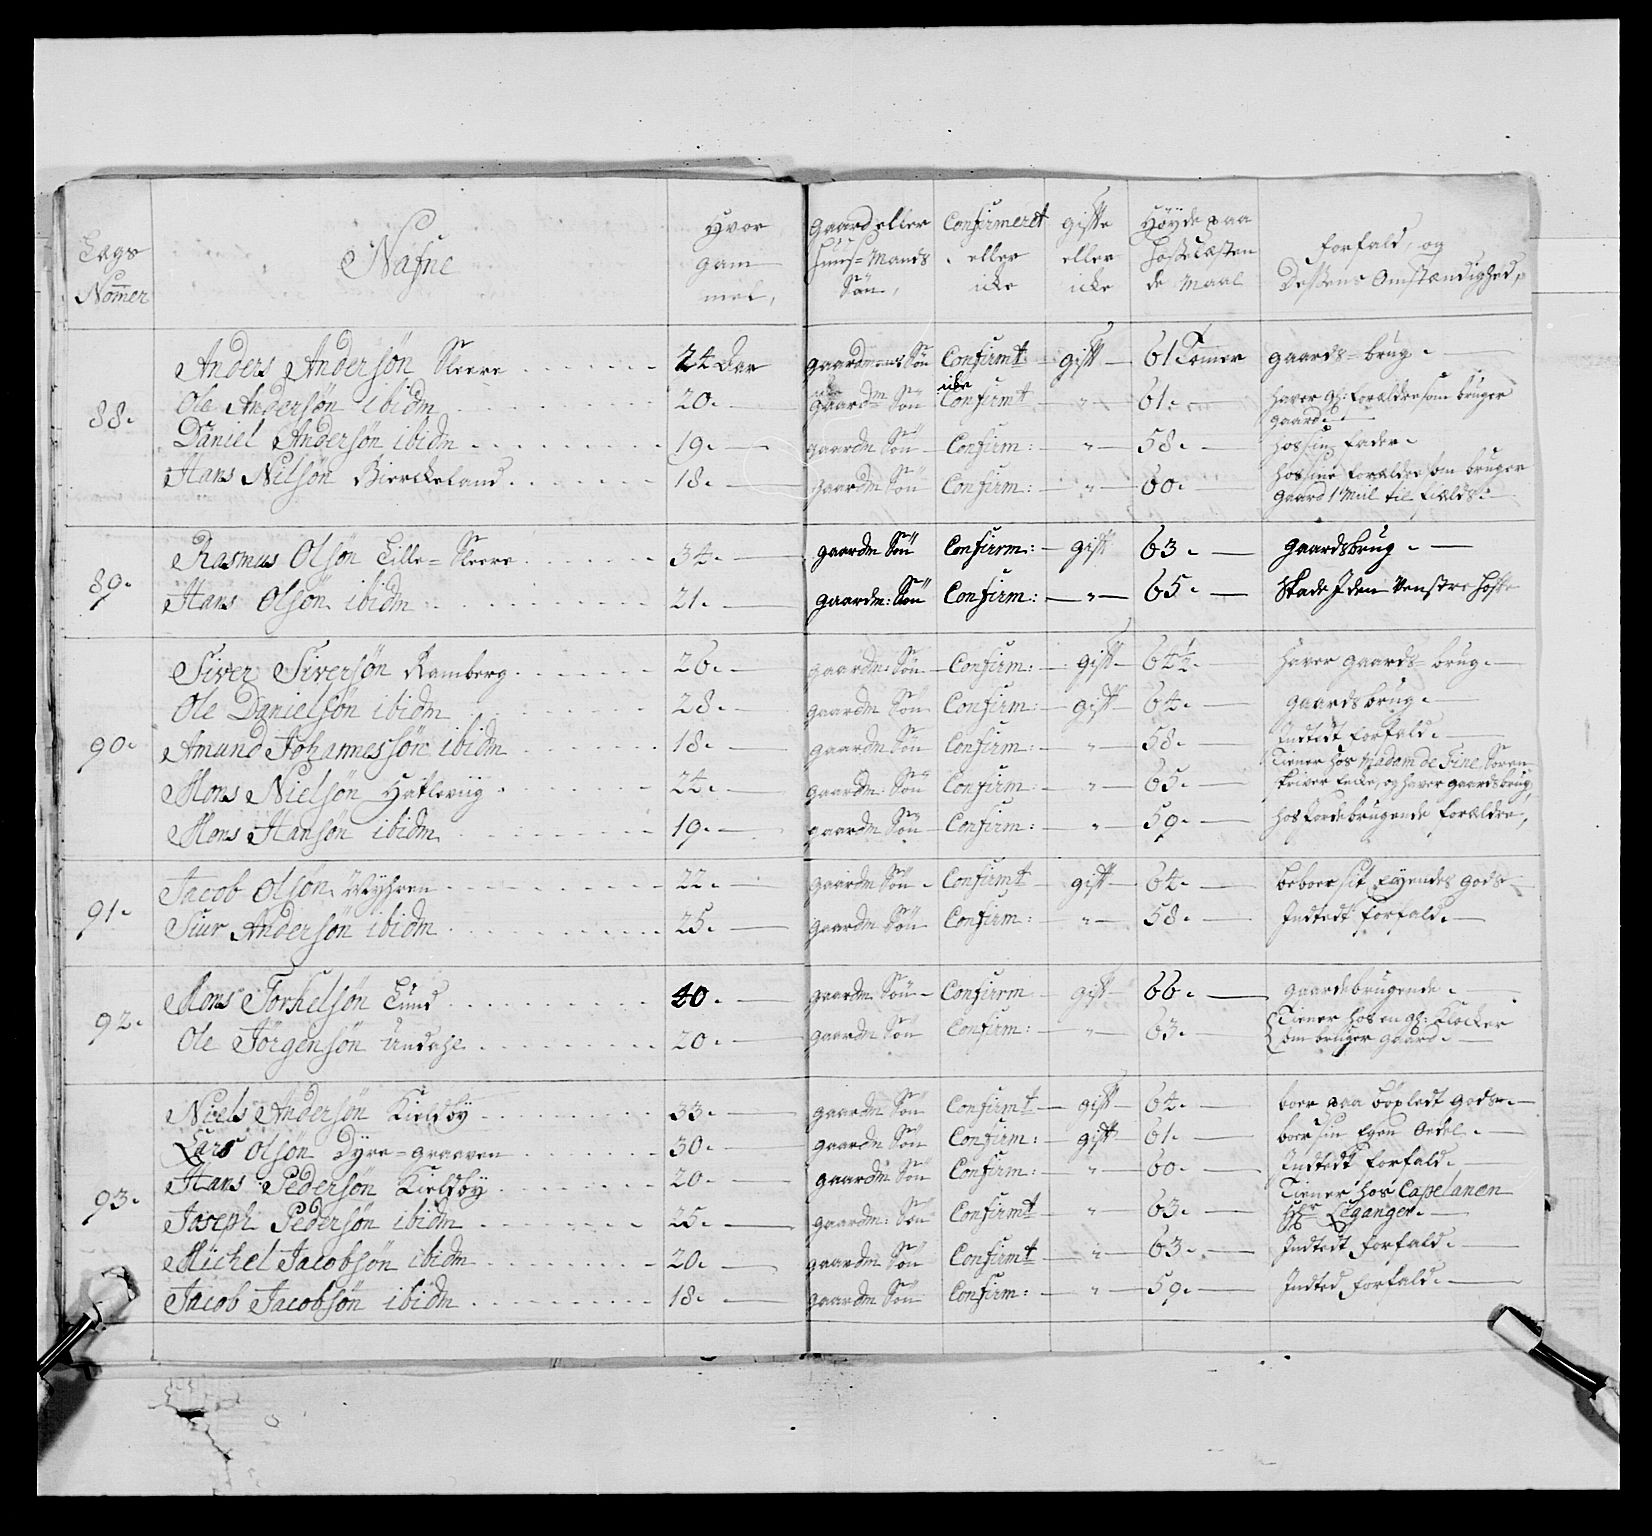 Lægs Nom̅er | Nafne | Hvor gam mel, | gaard eller Huus=Mands Søn, | Confirmeret eller icke | gifte eller icke | Høyde paa Hoslæsten de Maal | forfald, og Dessens Omstændighed,
88. | Anders Andersøn Sleere | 24 Aar | gaardmans Søn | Confirmt | gift | 61 Tom̅er | gaards=brug.
Ole Andersøn ibidm | 20. | gaardm Søn | icke Confirmt | " | 61. | haver gl: forældre som bruger gaard.
Daniel Andersøn ibidm | 19. | gaardm Søn | Confirm: | " | 58. | hos sin fader.
Hans Nilsøn Bierckeland | 18. | gaardm Søn | Confirm: | " | 60. | hos sine forældre som bruger gaard 1 Miil til fields.
89. | Rasmus Olsøn Lille=Sleere | 34. | gaardm Søn | Confirm: | gift | 63. | gaardsbrug.
Hans Olsøn ibidm | 21. | gaardm: Søn | Confirm: | " | 65. | Skade I den Venstre Hofte
90. | Siver Siversøn Ramberg | 26. | gaardm: Søn | Confirm: | gift | 64½. | haver gaards=brug.
Ole Danielsøn ibidm | 28. | gaardm Søn | Confirm: | gift | 64. | gaardsbrug.
Amund Johannessøn ibidm | 18. | gaardm Søn | Confirm: | " | 58. | Indtedt forfald.
Mons Nielsøn Hatleviig | 24. | gaardm: Søn | Confirm: | " | 65. | Tiener hos Madam de Fine Sorenskriver Encke, og haver gaardsbrug,
Mons Hansøn ibidm | 19. | gaardm Søn | Confirm: | " | 59. | hos Jordebrugende forældre,
91. | Jacob Olson Myhren | 22. | gaardm Søn | Confirmt | gift | 64. | beboer sit Eyendes gods
Siur Andersøn ibidm | 25. | gaardm Søn | Confirm: | " | 58. | Indtedt forfald.
92. | Mons Torkelsøn Lund | 40. | gaardm Søn | Confirm | gift | 66. | gaardebrugende.
Ole Jörgensøn Undahl | 20. | gaardm Søn | Confirm: | " | 63. | Tiener hos en gl: Klocker som bruger gaard.
93. | Niels Andersøn Kieldby | 33. | gaardm Søn | Confirmt | gift | 64. | boer paa bøxledt gods.
Lars Olson Dyre=graaven | 30. | gaardm Søn | Confirm: | gift | 61. | boer sin Egen Oedel.
Hans Pedersøn Kieldby | 20. | gaardm Søn | Confirm: | " | 60. | Indtedt forfald.
Joseph Pedersøn ibidm | 25. | gaardm: Søn | Confirmt | " | 63. | Tiener hos Capelanen Hr Leganger.
Michel Jacobsøn ibidm | 20. | gaardm Søn | Confirmt | " | 63. | Indtedt forfald.
Jacob Jacobsøn ibidm | 18. | gaardm Søn | Confirm: | " | 59. | Indted forfald.